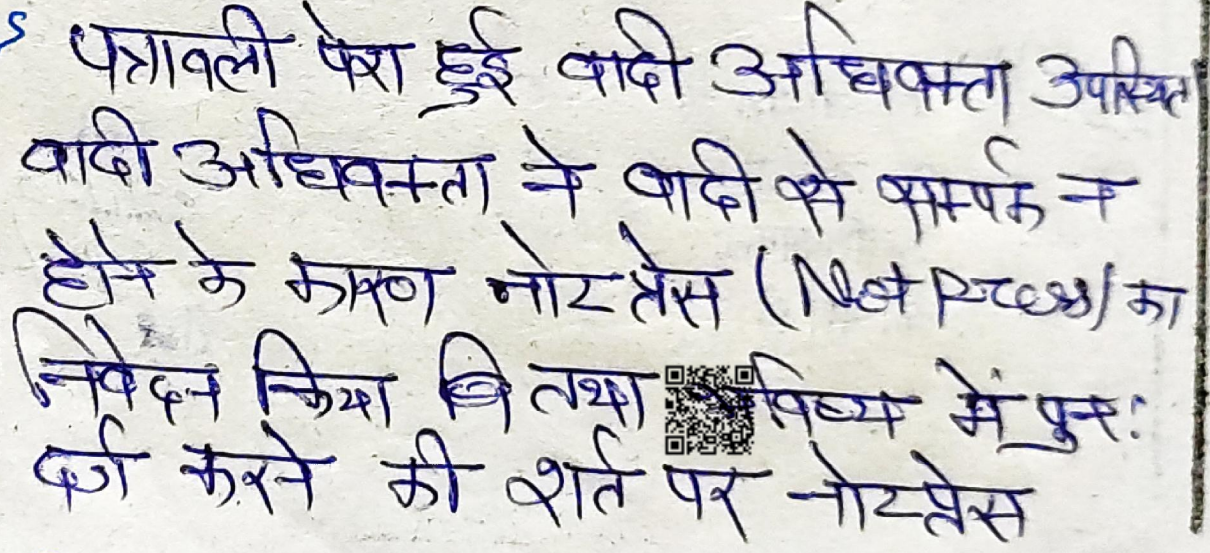 पत्रावली पेश हुई वादी अधिवक्ता उपस्थित
वादी अधिवक्ता ने वादी से सम्पर्क न
होने के कारण नोट प्रेस (Not Press) का
निवेदन किया तथा भविष्य में पुनः
दर्ज करने की शर्त पर नोटप्रेस